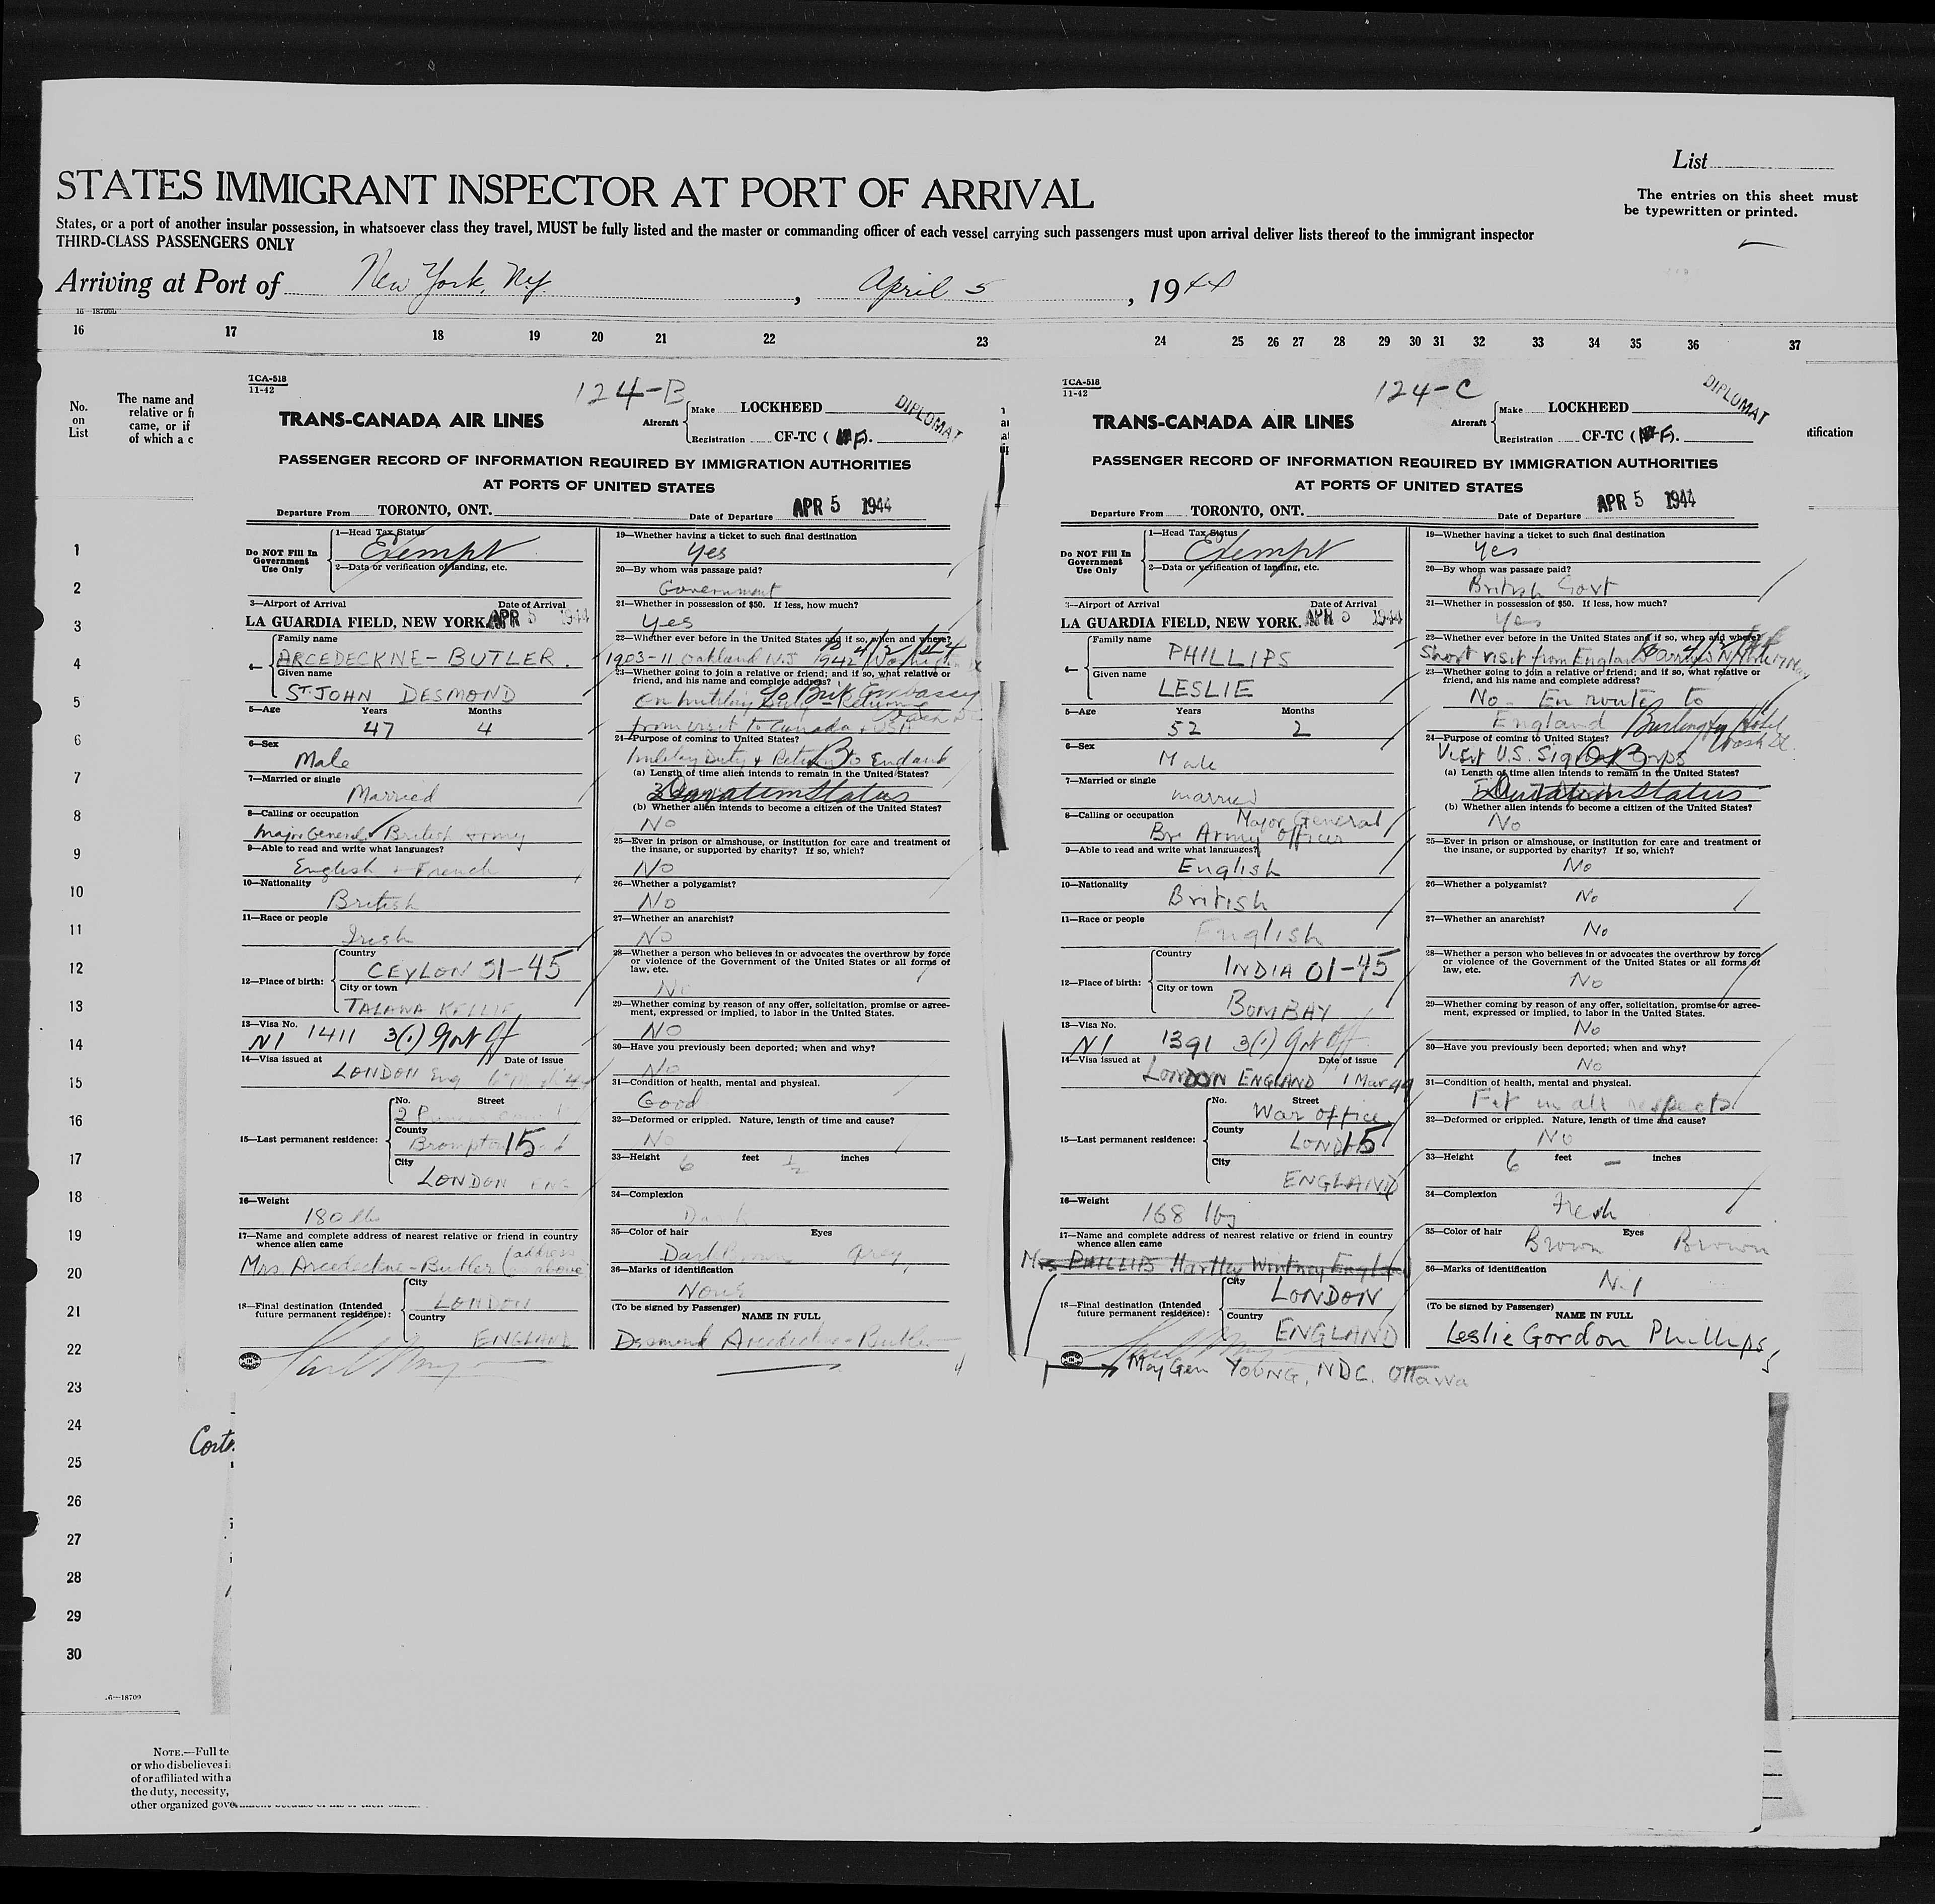 List
STATES IMMIGRANT INSPECTOR AT PORT OF ARRIVAL
The entries on this sheet must
be typewritten or printed.
States, or a port of another insular possession, in whatsoever class they travel, MUST be fully listed and the master or commanding officer of each vessel carrying such passengers must upon arrival deliver lists thereof to the immigrant inspector
THIRD-CLASS PASSENGERS ONLY
Arriving at Port of New York, N.Y. , April 5 , 1944
16—18709b
16 17 18 19 20 21 22 23 24 25 26 27 28 29 30 31 32 33 34 35 36 37
No.
on
List
The name and
relative or fr
came, or if
of which a c
TCA-518
11-42
124-B
DIPLOMAT
TRANS-CANADA AIR LINES
Aircraft
Make LOCKHEED
Registration CF-TC ( F).
PASSENGER RECORD OF INFORMATION REQUIRED BY IMMIGRATION AUTHORITIES
AT PORTS OF UNITED STATES
Departure From TORONTO, ONT. Date of Departure APR 5 1944
Do NOT Fill In
Government
Use Only
1—Head Tax Status
Exempt
2—Data or verification of landing, etc.
3—Airport of Arrival Date of Arrival
LA GUARDIA FIELD, NEW YORK. APR 5 1944
4—
Family name
ARCEDECKNE-BUTLER.
Given name
ST. JOHN DESMOND
5—Age Years Months
47 4
6—Sex
Male
7—Married or single
Married
8—Calling or occupation
Major General British Army
9—Able to read and write what languages?
English + French
10—Nationality
British
11—Race or people
Irish
12—Place of birth:
Country
CEYLON 01-45
City or town
TALAWA KELLIE
13—Visa No.
NI 1411 3(1) Govt Off
14—Visa issued at Date of issue
LONDON Eng
15—Last permanent residence:
No. Street
2
County
Brompton 15
City
LONDON ENG
16—Weight
180 lbs
17—Name and complete address of nearest relative or friend in country
whence alien came
Mrs. Arcedeckne-Butler (address
as above
18—Final destination (Intended
future permanent residence):
City
LONDON
Country
ENGLAND
19—Whether having a ticket to such final destination
Yes
20—By whom was passage paid?
Government
21—Whether in possession of $50. If less, how much?
Yes
22—Whether ever before in the United States and if so, when and where?
to 4/2/44
1903-11 Oakland N.J. 1942 Washington
23—Whether going to join a relative or friend; and if so, what relative or
friend, and his name and complete address?
c/o Brit Embassy
On military Duty - Returning
from visit to Canada + USA
24—Purpose of coming to United States?
Military Duty & Return to England
B
(a) Length of time alien intends to remain in the United States?
Duration Status
(b) Whether alien intends to become a citizen of the United States?
No
25—Ever in prison or almshouse, or institution for care and treatment of
the insane, or supported by charity? If so, which?
No
26—Whether a polygamist?
No
27—Whether an anarchist?
No
28—Whether a person who believes in or advocates the overthrow by force
or violence of the Government of the United States or all forms of
law, etc.
No
29—Whether coming by reason of any offer, solicitation, promise or agree-
ment, expressed or implied, to labor in the United States.
No
30—Have you previously been deported; when and why?
No
31—Condition of health, mental and physical.
Good
32—Deformed or crippled. Nature, length of time and cause?
No
33—Height 6 feet ½ inches
34—Complexion
Dark
35—Color of hair Eyes
Dark Brown Grey
36—Marks of identification
None
(To be signed by Passenger) NAME IN FULL
Desmond Arcedeckne-Butler
TCA-518
11-42
124-C
DIPLOMAT
TRANS-CANADA AIR LINES
Aircraft
Make LOCKHEED
Registration CF-TC ( F).
PASSENGER RECORD OF INFORMATION REQUIRED BY IMMIGRATION AUTHORITIES
AT PORTS OF UNITED STATES
Departure From TORONTO, ONT. Date of Departure APR 5 1944
Do NOT Fill In
Government
Use Only
1—Head Tax Status
Exempt
2—Data or verification of landing, etc.
3—Airport of Arrival Date of Arrival
LA GUARDIA FIELD, NEW YORK. APR 5 1944
4—
Family name
PHILLIPS
Given name
LESLIE
5—Age Years Months
52 2
6—Sex
Male
7—Married or single
married
8—Calling or occupation
Major General
Br Army Officer
9—Able to read and write what languages?
English
10—Nationality
British
11—Race or people
English
12—Place of birth:
Country
INDIA 01-45
City or town
BOMBAY
13—Visa No.
NI 1391 3(1) Govt Off
14—Visa issued at Date of issue
LONDON ENGLAND 1 Mar 44
15—Last permanent residence:
No. Street
War office
County
LONDON 15
City
ENGLAND
16—Weight
168 lbs
17—Name and complete address of nearest relative or friend in country
whence alien came
Mrs PHILLIPS Hartley Wintney England
18—Final destination (Intended
future permanent residence):
City
LONDON
Country
ENGLAND
Maj Gen YOUNG, NDC. Ottawa
19—Whether having a ticket to such final destination
Yes
20—By whom was passage paid?
British Govt
21—Whether in possession of $50. If less, how much?
Yes
22—Whether ever before in the United States and if so, when and where?
to 4/2/44
Short visit from England
23—Whether going to join a relative or friend; and if so, what relative or
friend, and his name and complete address?
No - En route to
England Burlington Hotel
Wash DC.
24—Purpose of coming to United States?
Visit U.S. Signal Corps
B
(a) Length of time alien intends to remain in the United States?
Duration Status
(b) Whether alien intends to become a citizen of the United States?
No
25—Ever in prison or almshouse, or institution for care and treatment of
the insane, or supported by charity? If so, which?
No
26—Whether a polygamist?
No
27—Whether an anarchist?
No
28—Whether a person who believes in or advocates the overthrow by force
or violence of the Government of the United States or all forms of
law, etc.
No
29—Whether coming by reason of any offer, solicitation, promise or agree-
ment, expressed or implied, to labor in the United States.
No
30—Have you previously been deported; when and why?
No
31—Condition of health, mental and physical.
Fit in all respects
32—Deformed or crippled. Nature, length of time and cause?
No
33—Height 6 feet — inches
34—Complexion
Fresh
35—Color of hair Eyes
Brown Brown
36—Marks of identification
Nil
(To be signed by Passenger) NAME IN FULL
Leslie Gordon Phillips
tification
1
2
3
4
5
6
7
8
9
10
11
12
13
14
15
16
17
18
19
20
21
22
23
24
25
26
27
28
29
30
16—18709
NOTE.—Full te
or who disbelieves i
of or affiliated with a
the duty, necessity,
other organized gove